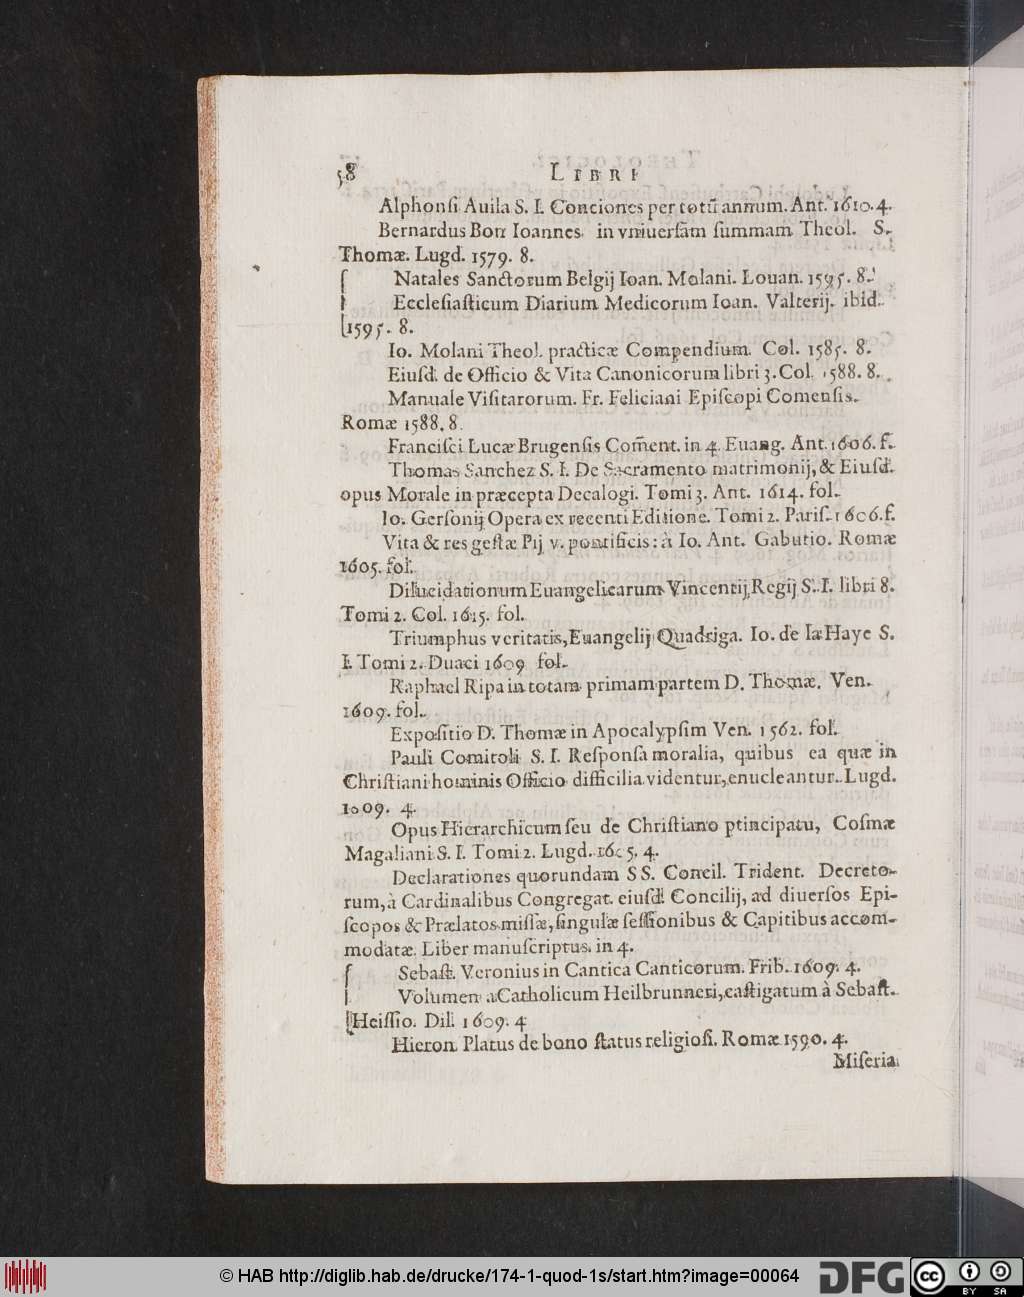 58 LIBRI
Alphonſi Auila S. I. Conciones per totũ annum. Ant. 1610. 4.
Bernardus Bon Ioannes in vniuerſam ſummam Theol. S.
Thomæ. Lugd. 1579. 8.
Natales Sanctorum Belgij Ioan. Molani. Louan. 1595. 8.
Eccleſiaſticum Diarium Medicorum Ioan. Valterij. ibid.
1595. 8.
Io. Molani Theol. practicæ Compendium. Col. 1585. 8.
Eiuſd. de Officio & Vita Canonicorum libri 3. Col. 1588. 8.
Manuale Viſitatorum. Fr. Feliciani Epiſcopi Comenſis.
Romæ 1588. 8.
Franciſci Lucæ Brugenſis Com̃ent. in 4. Euang. Ant. 1606. f.
Thomas Sanchez S. I. De Sacramento matrimonij, & Eiuſd.
opus Morale in præcepta Decalogi. Tomi 3. Ant. 1614. fol.
Io. Gerſonij Opera ex recenti Editione. Tomi 2. Pariſ. 1606. f.
Vita & res geſtæ Pij v. pontificis: à Io. Ant. Gabutio. Romæ
1605. fol.
Dilucidationum Euangelicarum Vincentij Regij S. I. libri 8.
Tomi 2. Col. 1615. fol.
Triumphus veritatis, Euangelij Quadriga. Io. de la Haye S.
I. Tomi 2. Duaci 1609 fol.
Raphael Ripa in totam primam partem D. Thomæ. Ven.
1609. fol.
Expoſitio D. Thomæ in Apocalypſim Ven. 1562. fol.
Pauli Comitoli S. I. Reſponſa moralia, quibus ea quæ in
Chriſtiani hominis Officio difficilia videntur, enucleantur. Lugd.
1609. 4.
Opus Hierarchicum ſeu de Chriſtiano ptincipatu, Coſmæ
Magaliani S. I. Tomi 2. Lugd. 1605. 4.
Declarationes quorundam SS. Concil. Trident. Decreto-
rum, à Cardinalibus Congregat. eiuſd. Concilij, ad diuerſos Epi-
ſcopos & Prælatos miſſæ, ſingulæ ſeſſionibus & Capitibus accom-
modatæ. Liber manuſcriptus. in 4.
Sebaſt. Veronius in Cantica Canticorum. Frib. 1609. 4.
Volumen a Catholicum Heilbrunneri, caſtigatum à Sebaſt.
Heiſſio. Dil. 1609. 4
Hieron. Platus de bono ſtatus religioſi. Romæ 1590. 4.
Miſeria
© HAB http://diglib.hab.de/drucke/174-1-quod-1s/start.htm?image=00064
DFG
cc BY SA